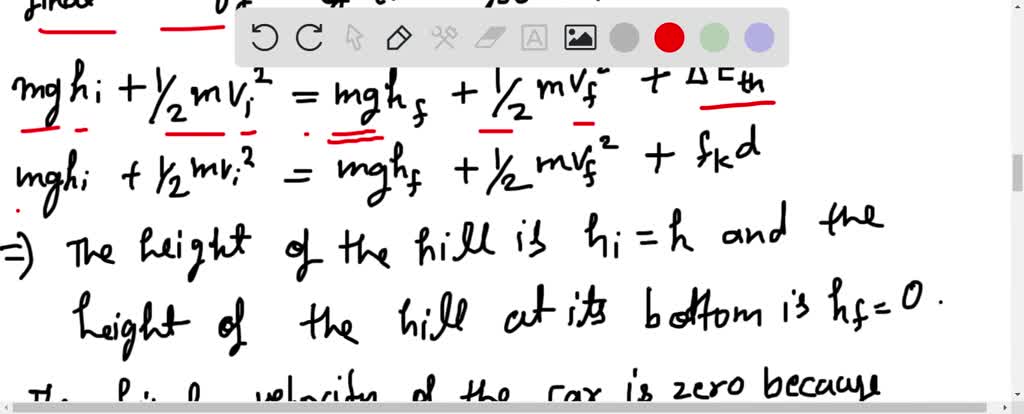 mghi + 1/2 mvi² = mghf + 1/2 mvf² + ΔEth
mghi + 1/2 mvi² = mghf + 1/2 mvf² + fkd
⇒) The height of the hill is hi = h and the
height of the hill at its bottom is hf = 0.
velocity of the car is zero because